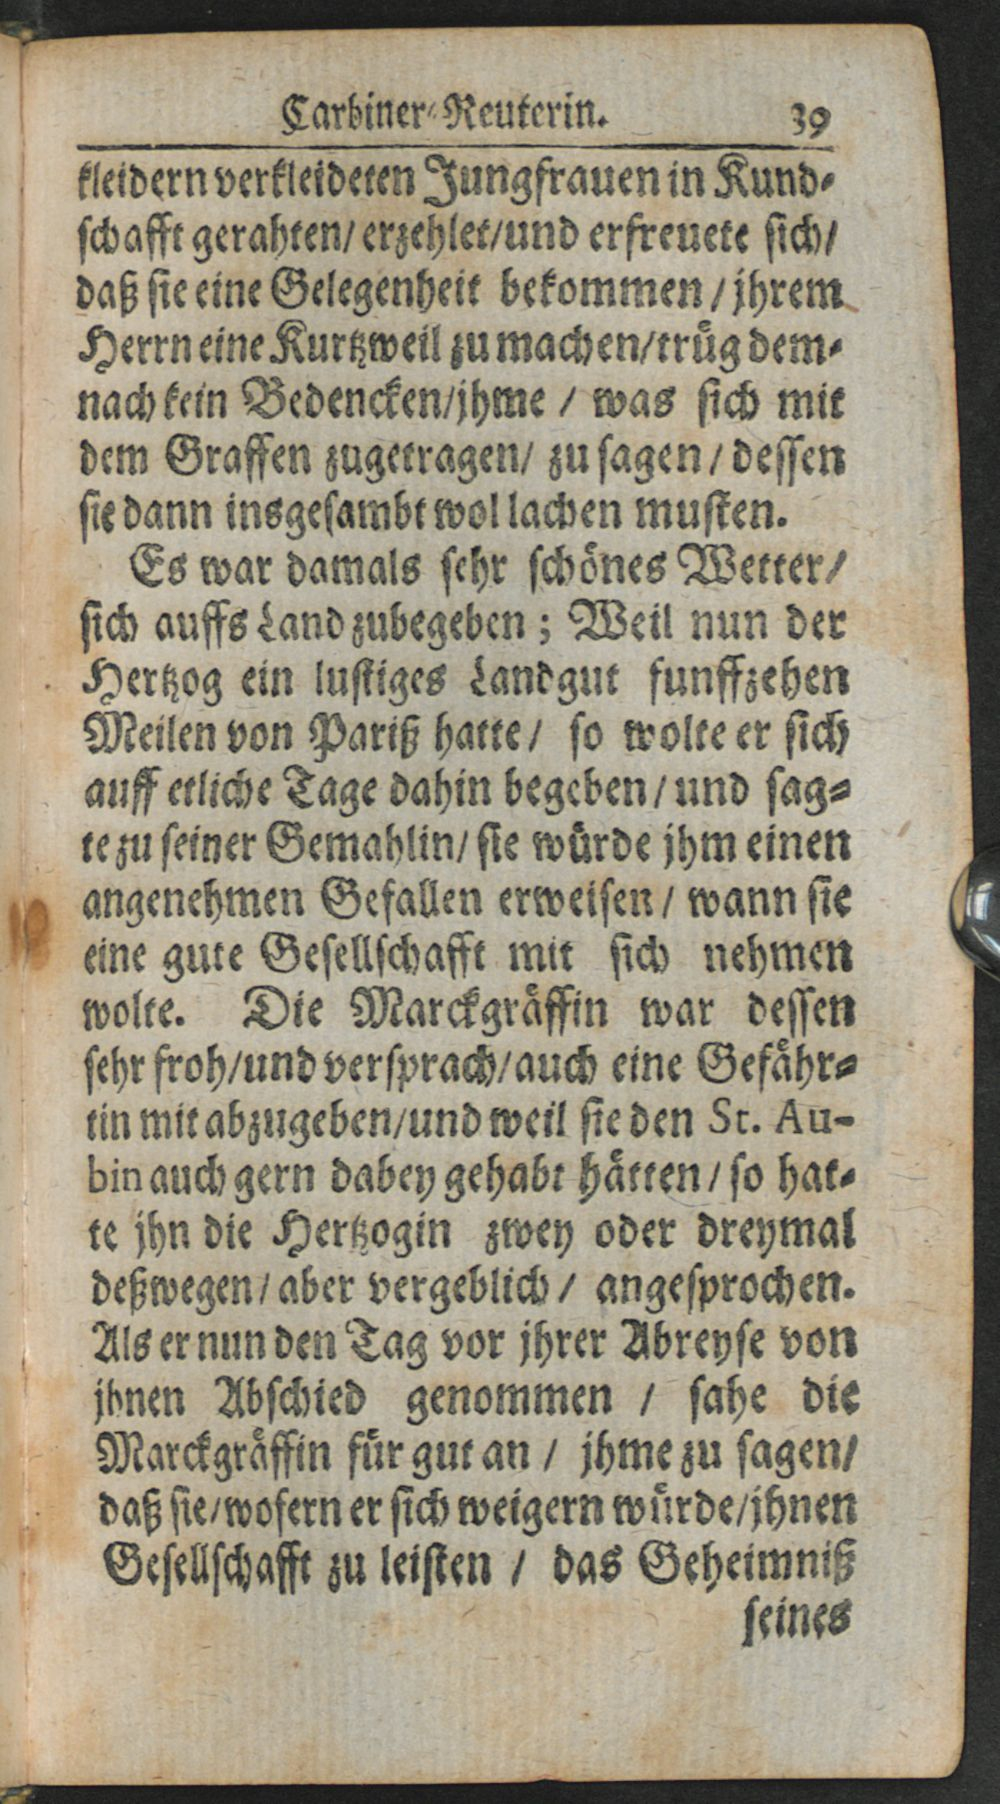 Carbiner-Reuterin. 39
kleidern verkleideten Jungfrauen in Kund-
schafft gerahten/ erzehlet/und erfreuete sich/
daß sie eine Gelegenheit bekommen / jhrem
Herrn eine Kurtzweil zu machen/trůg dem-
nach kein Bedencken/jhme / was sich mit
dem Graffen zugetragen/ zu sagen / dessen
sie dann insgesambt wol lachen musten.
Es war damals sehr schönes Wetter/
sich auffs Land zubegeben ; Weil nun der
Hertzog ein lustiges Landgut funffzehen
Meilen von Pariß hatte / so wolte er sich
auff etliche Tage dahin begeben / und sag-
te zu seiner Gemahlin/ sie wůrde jhm einen
angenehmen Gefallen erweisen / wann sie
eine gute Gesellschafft mit sich nehmen
wolte. Die Marckgräffin war dessen
sehr froh/und versprach/auch eine Gefähr-
tin mit abzugeben/und weil sie den St. Au-
bin auch gern dabey gehabt hätten / so hat-
te jhn die Hertzogin zwey oder dreymal
deßwegen / aber vergeblich / angesprochen.
Als er nun den Tag vor jhrer Abreyse von
jhnen Abschied genommen / sahe die
Marckgräffin fůr gut an / jhme zu sagen/
daß sie/wofern er sich weigern wůrde/jhnen
Gesellschafft zu leisten / das Geheimniß
seines